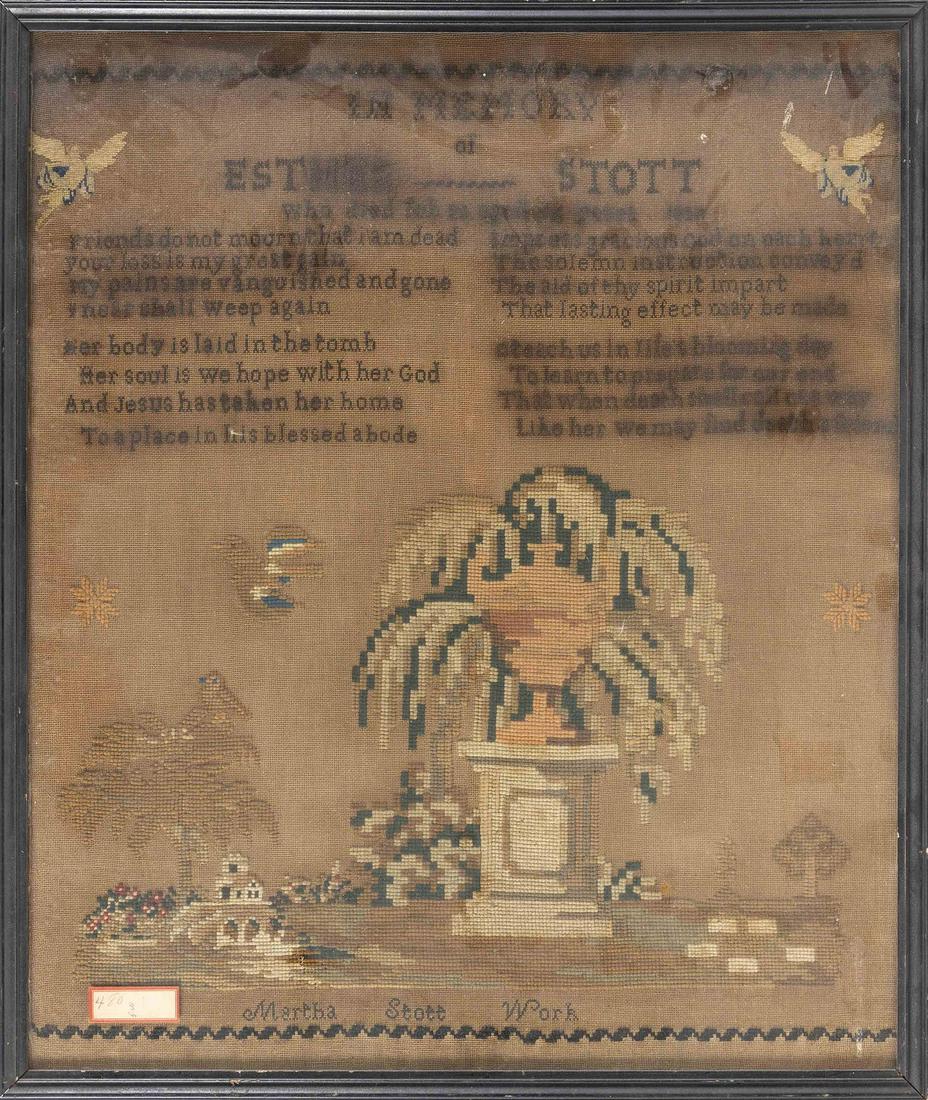 IN MEMORY
of
ESTHER STOTT
Who died feb
Friends do not mourn that I am dead
your loss is my great gain
My pains are vanquished and gone
I near shall weep again
Her body is laid in the tomb
Her soul is we hope with her God
And Jesus has taken her home
To a place in his blessed abode
Impress gracious God on each heart
The solemn instruction convey'd
The aid of thy spirit impart
That lasting effect may be made
O teach us in life's blooming day
To learn to prepare for our end
That when death shall call us away
Like her we may find death a friend
Martha Stott Work